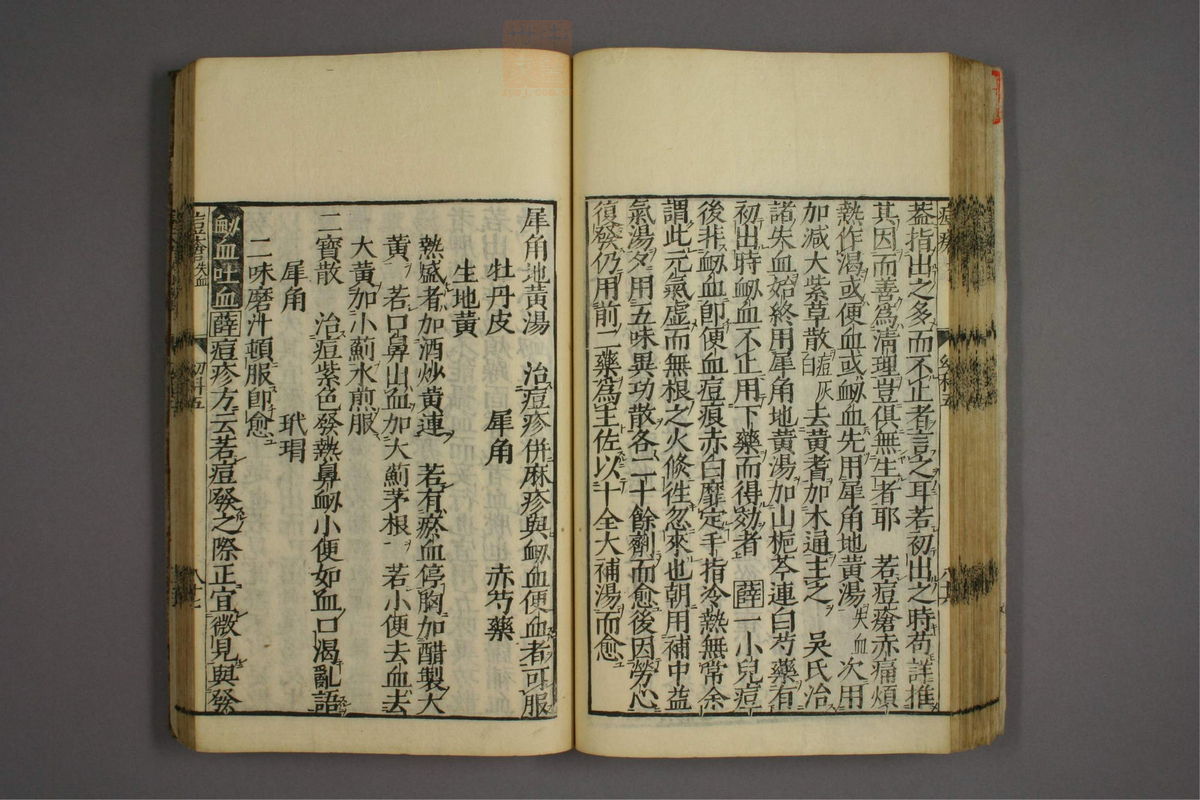 葢指出之多而不止者言之耳若初出之時苟詳推
其因而善爲淸理豈俱無生者耶　若痘瘡赤痛煩
熱作渴或便血或衂血先用犀角地黃湯失血次用
加減大紫草散痘灰白去黃耆加木通主之　吳氏治
諸失血始終用犀角地黃湯加山梔芩連白芍藥有
初出時衂血不止用下藥而得効者　薛一小兒痘
後非衂血卽便血痘痕赤白靡定手指冷熱無常余
謂此元氣虛而無根之火倐徃忽來也朝用補中益
氣湯夕用五味異功散各二十餘劑而愈後因勞心
復發仍用前二藥爲主佐以十全大補湯而愈
犀角地黃湯　治痘疹併麻疹與衂血便血者可服
牡丹皮　犀角　赤芍藥
生地黃
熱盛者加酒炒黃連　若有瘀血停胸加醋製大
黃　若口鼻出血加大薊茅根　若小便去血去
大黃加小薊水煎服
二寶散　治痘紫色發熱鼻衂小便如血口渴亂語
犀角　玳瑁
二味磨汁頓服卽愈
衂血吐血　薛痘疹方云若痘發之際正宜微見與發